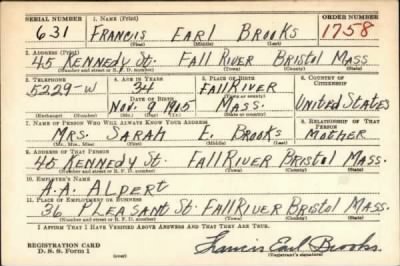 SERIAL NUMBER 1. NAME (Print) ORDER NUMBER
631 FRANCIS EARL BROOKS 1758
(First) (Middle) (Last)
2. ADDRESS (Print)
45 KENNEDY St. FALL RIVER BRISTOL MASS
(Number and street or R. F. D. number) (Town) (County) (State)
3. TELEPHONE 4. AGE IN YEARS 5. PLACE OF BIRTH 6. COUNTRY OF CITIZENSHIP
5229-W 34 FALL RIVER
DATE OF BIRTH
Nov. 9 1905 MASS. United STATES
7. NAME OF PERSON WHO WILL ALWAYS KNOW YOUR ADDRESS 8. RELATIONSHIP OF THAT PERSON
MRS. SARAH E. BROOKS MOTHER
(Mr., Mrs., Miss) (First) (Middle) (Last)
9. ADDRESS OF THAT PERSON
45 KENNEDY St. FALL RIVER BRISTOL MASS.
(Number and street or R. F. D. number) (Town) (County) (State)
10. EMPLOYER'S NAME
A.A. ALPERT
11. PLACE OF EMPLOYMENT OR BUSINESS
36 PLEASANT St. FALL RIVER BRISTOL MASS.
(Number and street or R. F. D. number) (Town) (County) (State)
I AFFIRM THAT I HAVE VERIFIED ABOVE ANSWERS AND THAT THEY ARE TRUE.
REGISTRATION CARD
D. S. S. Form 1 (over) Francis Earl Brooks.
(Registrant's signature)